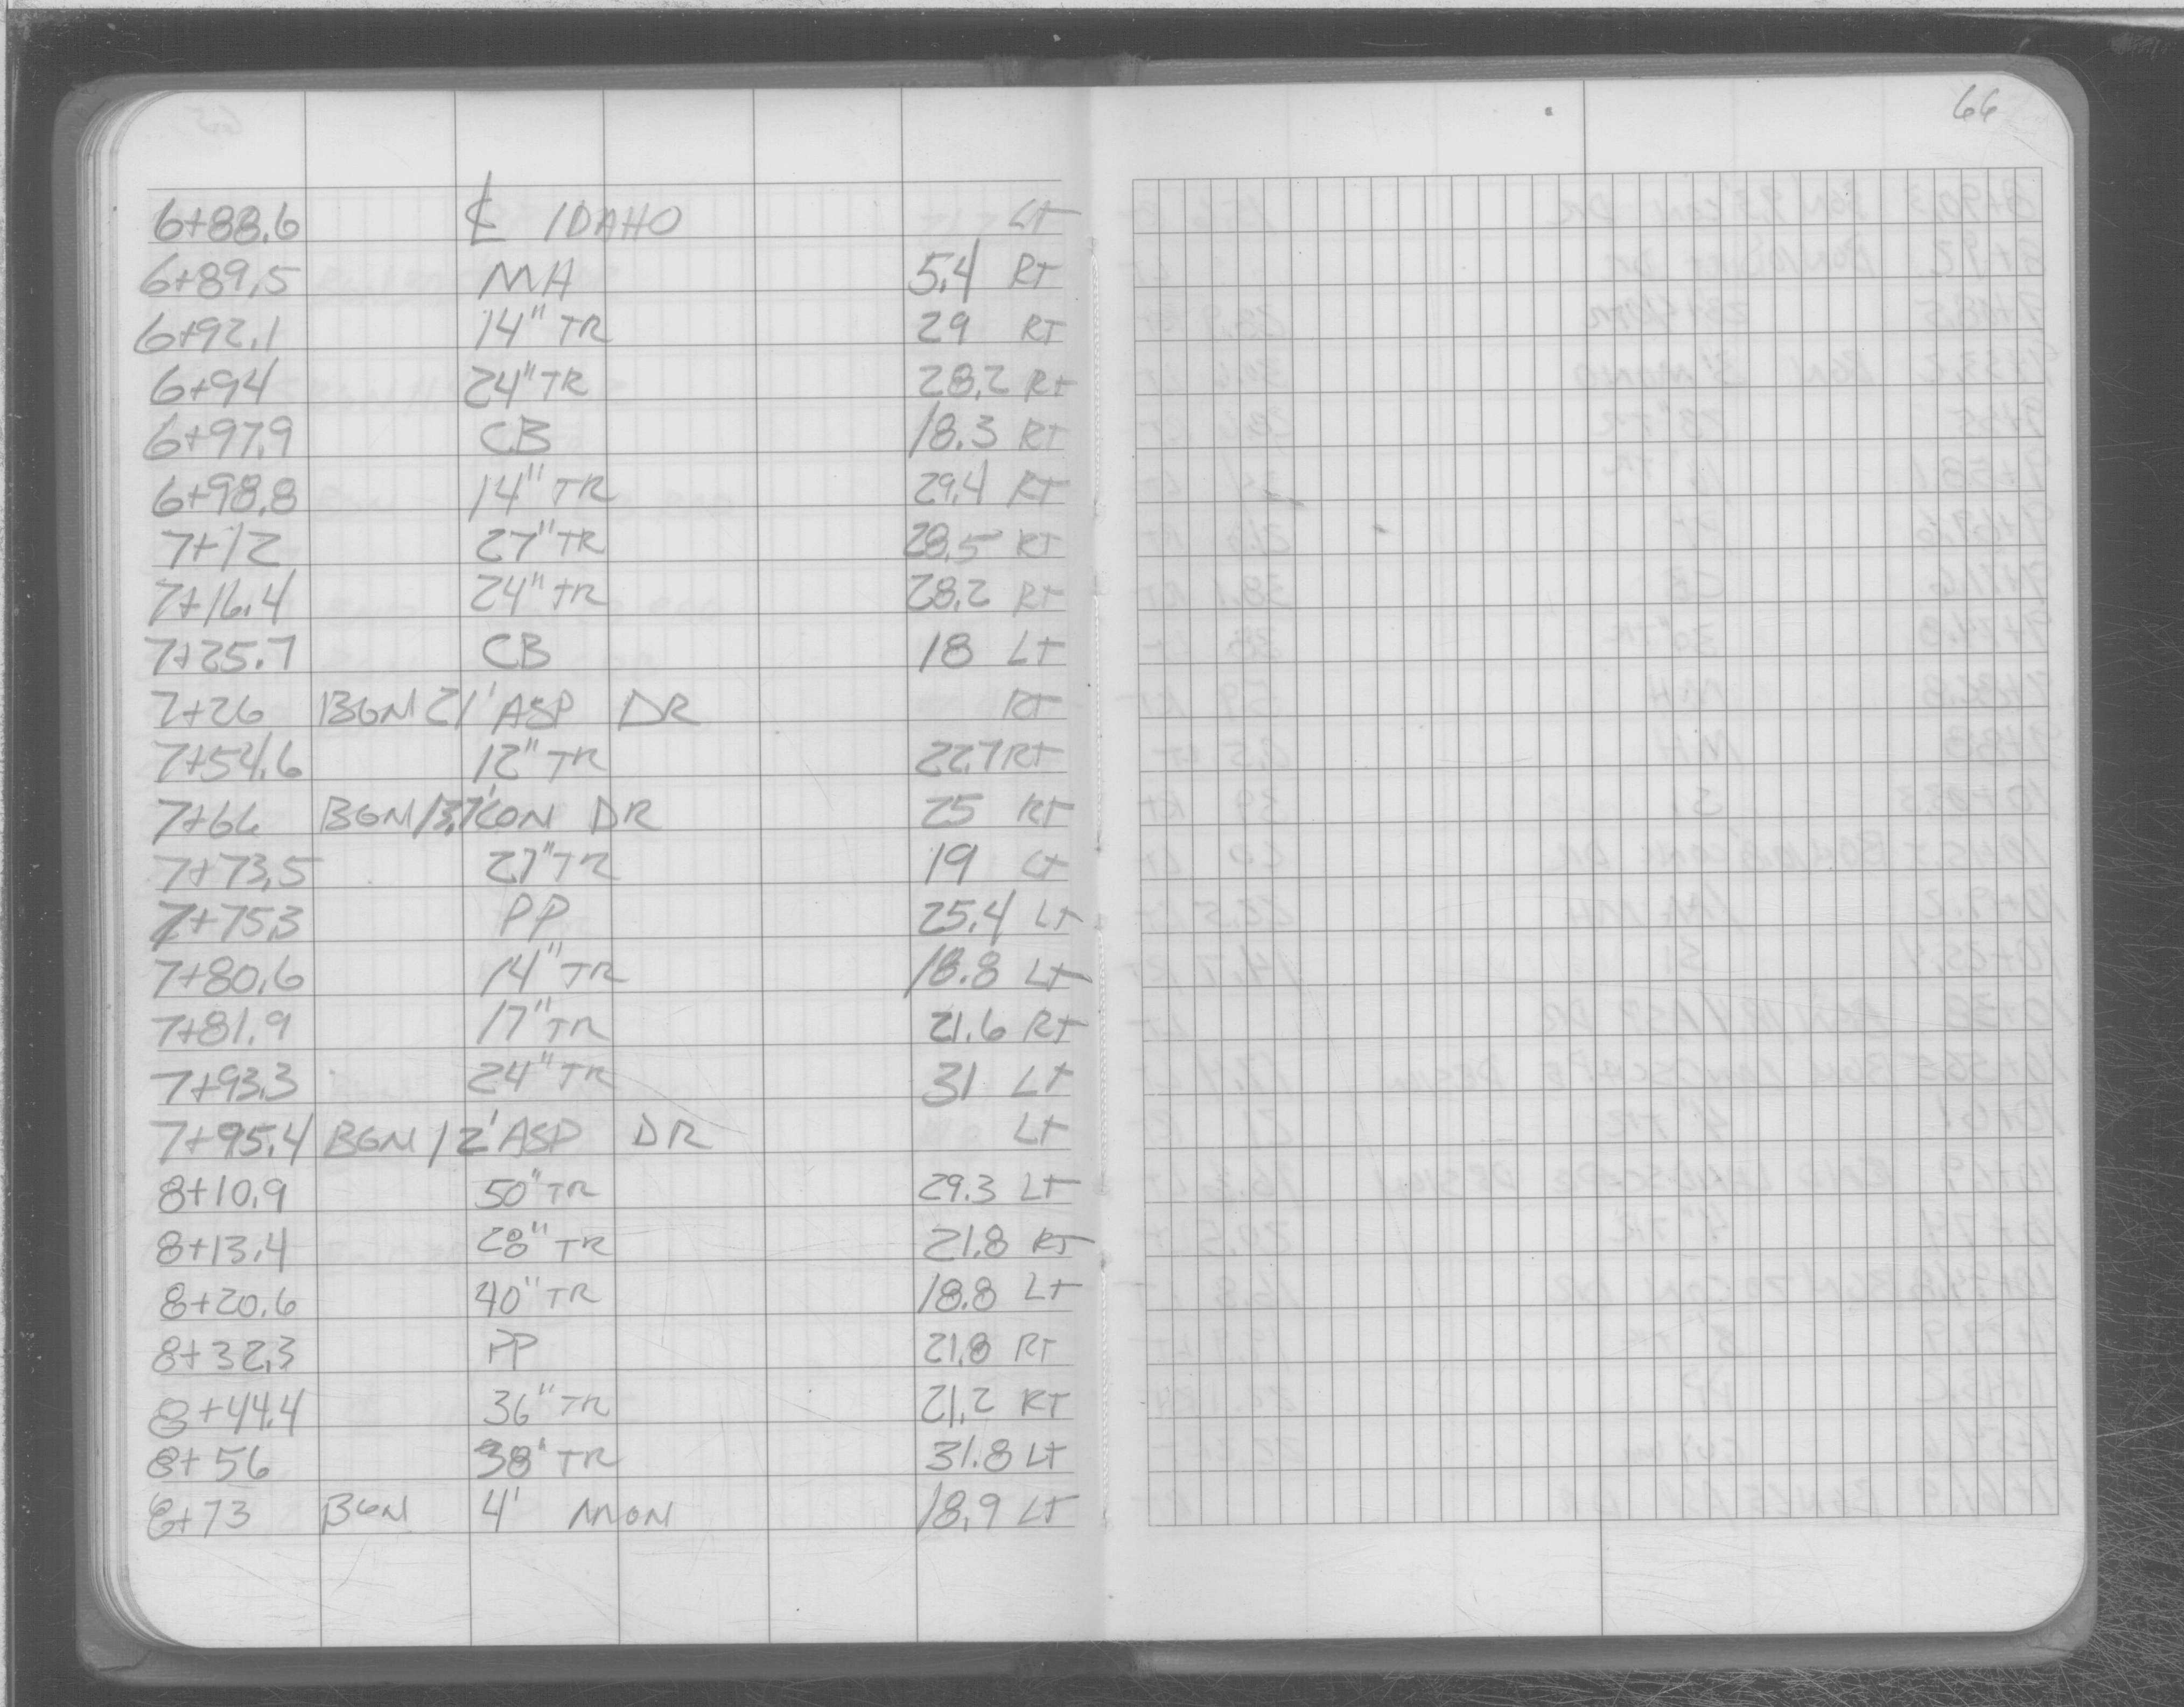 66
6+88.6 ℄ IDAHO LT
6+89.5 MH 5.4 RT
6+92.1 14" TR 29 RT
6+94 24" TR 28.2 RT
6+97.9 CB 18.3 RT
6+98.8 14" TR 29.4 RT
7+12 27" TR 28.5 RT
7+16.4 24" TR 28.2 RT
7+25.7 CB 18 LT
7+26 BGN 21' ASP DR RT
7+54.6 12" TR 22.7 RT
7+66 BGN 13.7' CON DR 25 RT
7+73.5 27" TR 19 LT
7+75.3 PP 25.4 LT
7+80.6 14" TR 18.8 LT
7+81.9 17" TR 21.6 RT
7+93.3 24" TR 31 LT
7+95.4 BGN 12' ASP DR LT
8+10.9 50" TR 29.3 LT
8+13.4 28" TR 21.8 RT
8+20.6 40" TR 18.8 LT
8+32.3 PP 21.8 RT
8+44.4 36" TR 21.2 RT
8+56 38" TR 31.8 LT
8+73 BGN 4' MON 18.9 LT